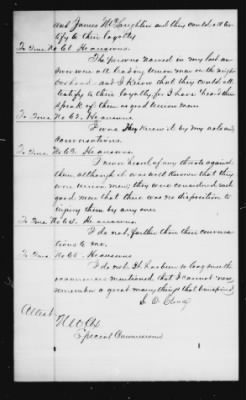 and James McLaughlin and they could all tes-
tify to their loyalty
To Inter. No 61. He answers.
The persons named in my last an-
swer were all leading Union men in the neigh-
borhood and I know that they could all
testify to their loyalty for I have heard them
speak of them as good Union men
To Inter. No 62. He answers
I was. They knew it by my actions
conversations.
To Inter. No 63. He answers.
I never heard of any threats against
them although it was well known that they
were Union men they were considered such
good men that there was no disposition to
injure them by any one
To Inter. No 64. He answers.
I do not, further than their conversa-
tions to me.
To Inter. No 65. He answers
I do not. It has been so long since the
occurrences mentioned that I cannot now
remember a great many things that transpired
Attest
Special Commissioner